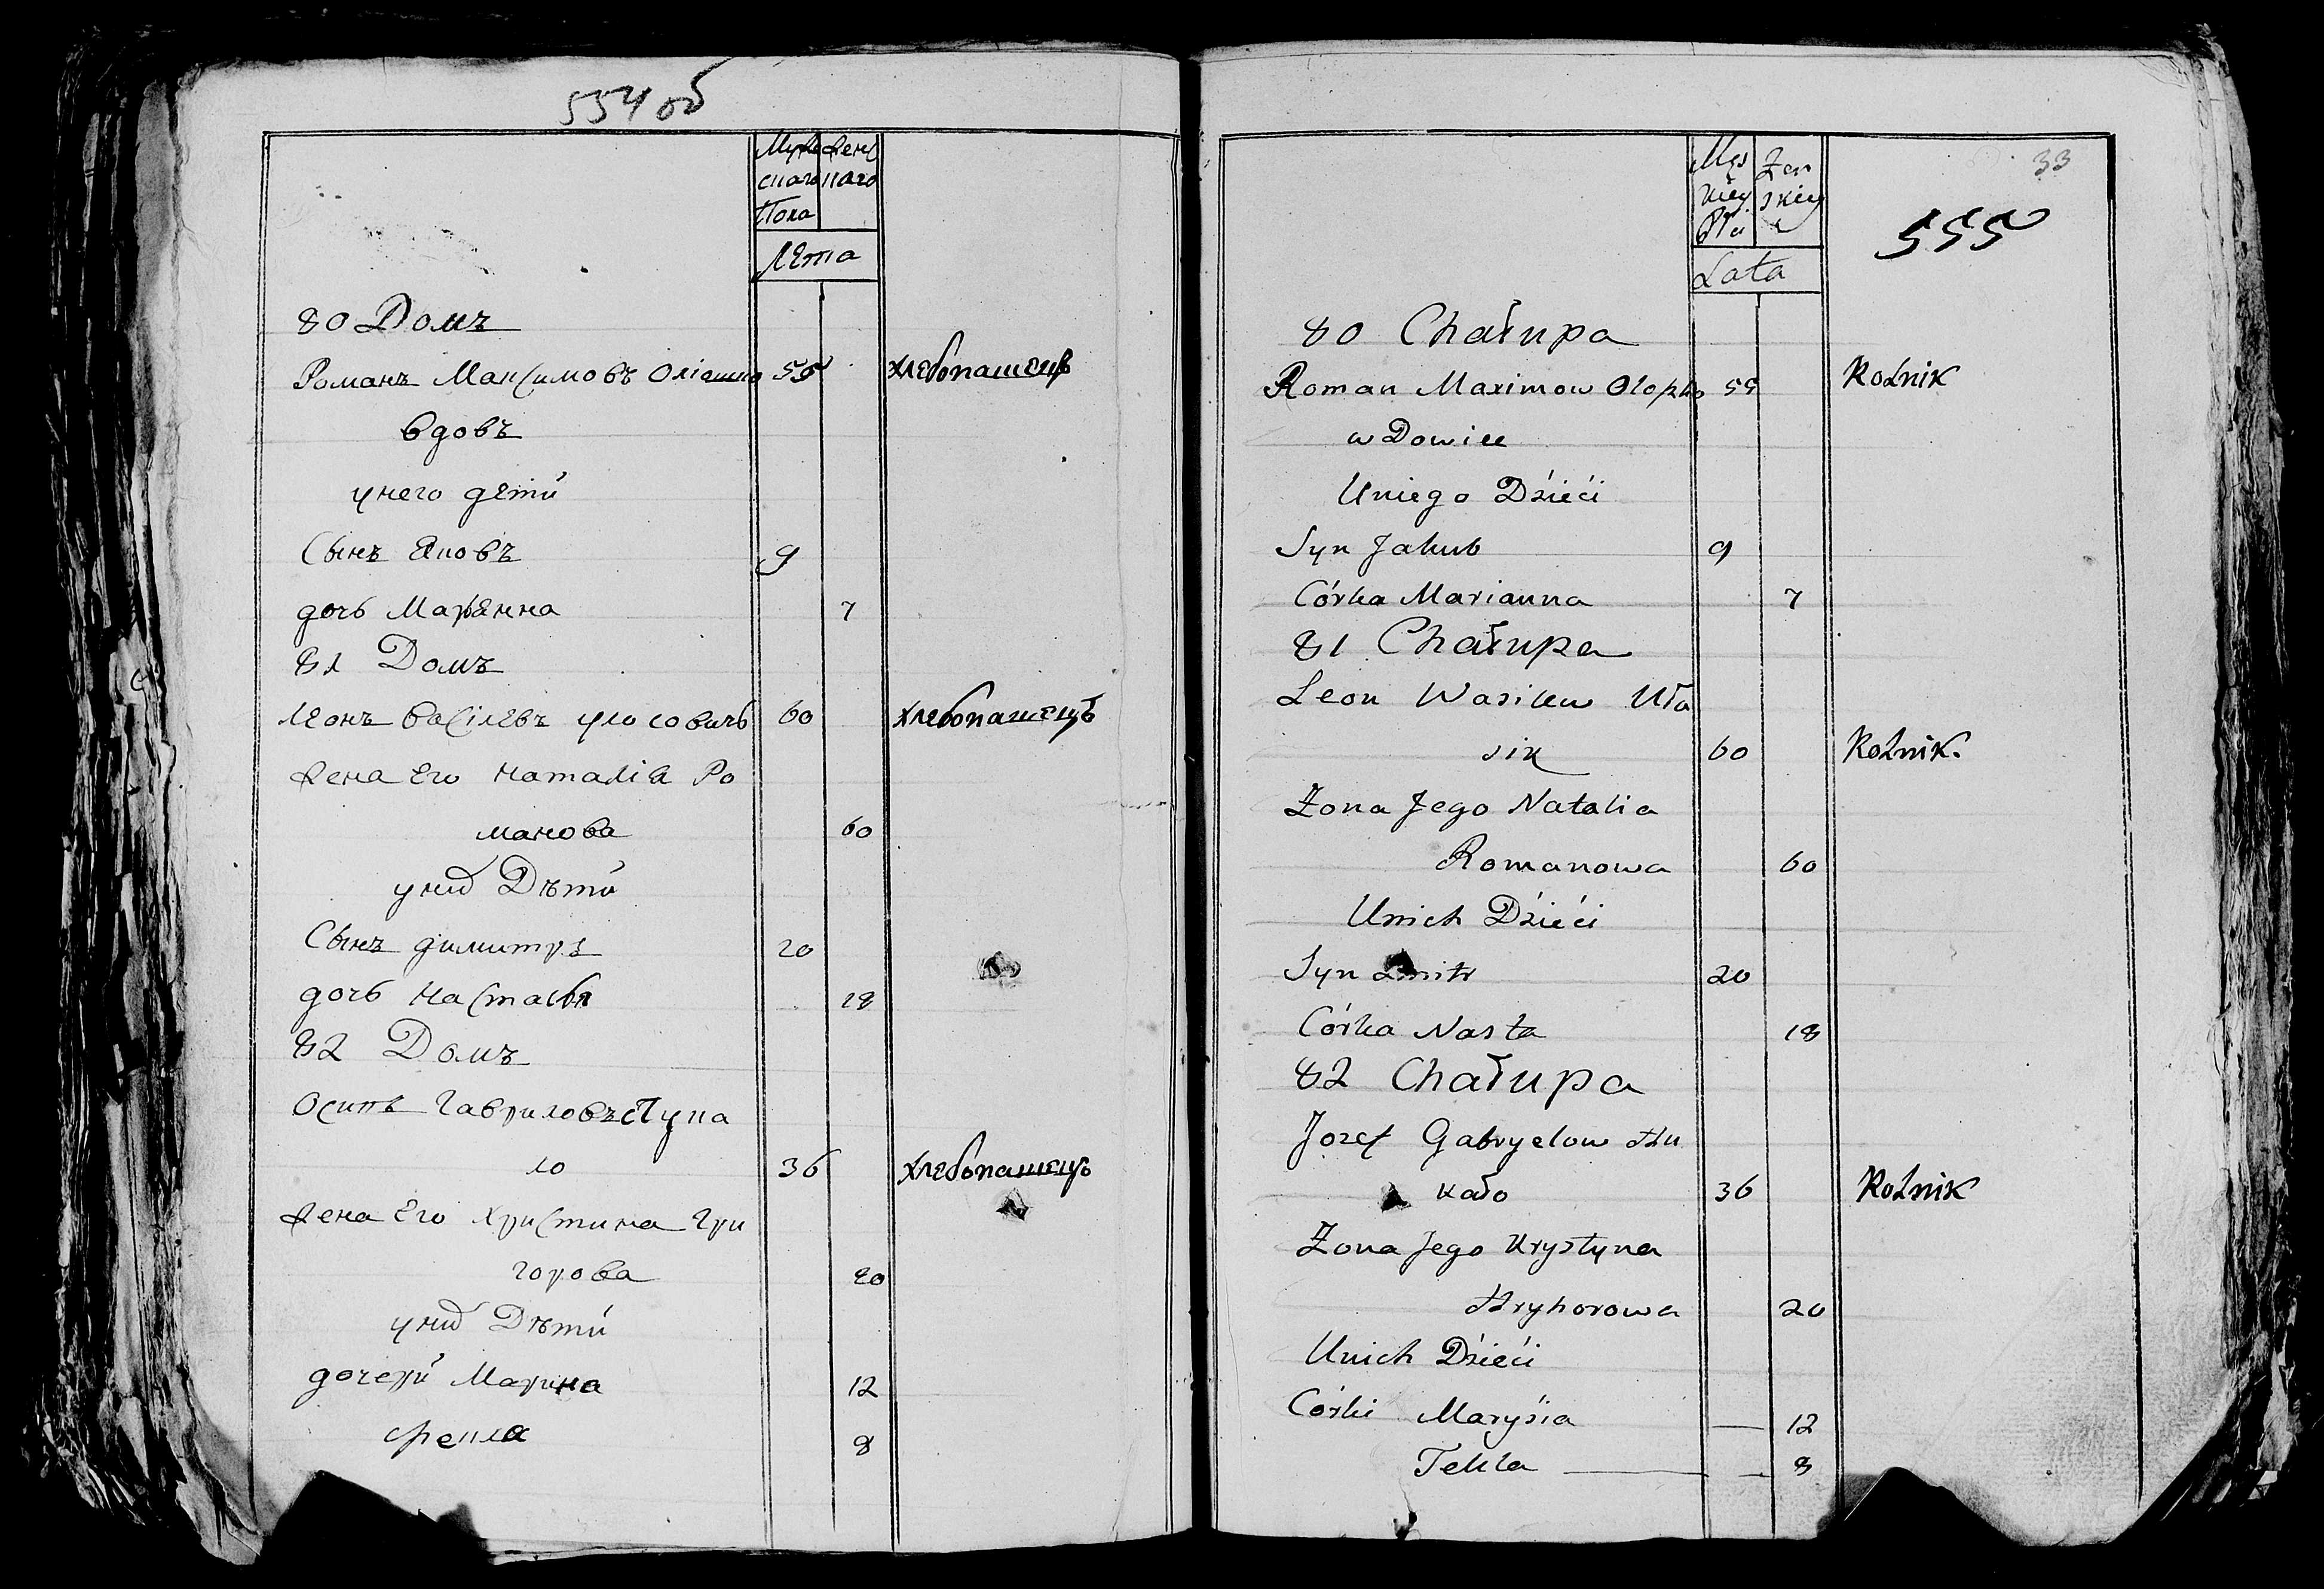 554 об
Муже Жен
скаго скаго
Пола
Лета
80 Домъ
Романъ Максимовъ 55 хлебопашецъ
вдовъ
унего дети
Сынъ Яковъ 9
дочь Марянна 7
81 Домъ
Леонъ Васілевъ 60 хлебопашецъ
Жена Его Наталія Ро
манова 60
уних Дѣти
Сынъ димитръ 20
дочь Настасья 18
82 Домъ
Осипъ Гавриловъ
ло 36 хлебопашецъ
Жена Его Христина Гри
горова 20
уних Дѣти
дочери Марина 12
Фекла 8
33
555
Męs Żen
kiey skiey
Płci
Lata
80 Chałupa
Roman Maximow 55 Rolnik
wDowiec
Uniego Dzieći
Syn Jakub 9
Córka Marianna 7
81 Chałupa
Leon Wasilew Ułа
sik 60 Rolnik.
Żona Jego Natalia
Romanowa 60
Unich Dzieći
Syn 20
Córka Nasta 18
82 Chałupa
Jozef Gabryelow
kało 36 Rolnik
Żona Jego Krystyna
Hryhorowa 20
Unich Dzieći
Córki Marysia — 12
Tekla — 8